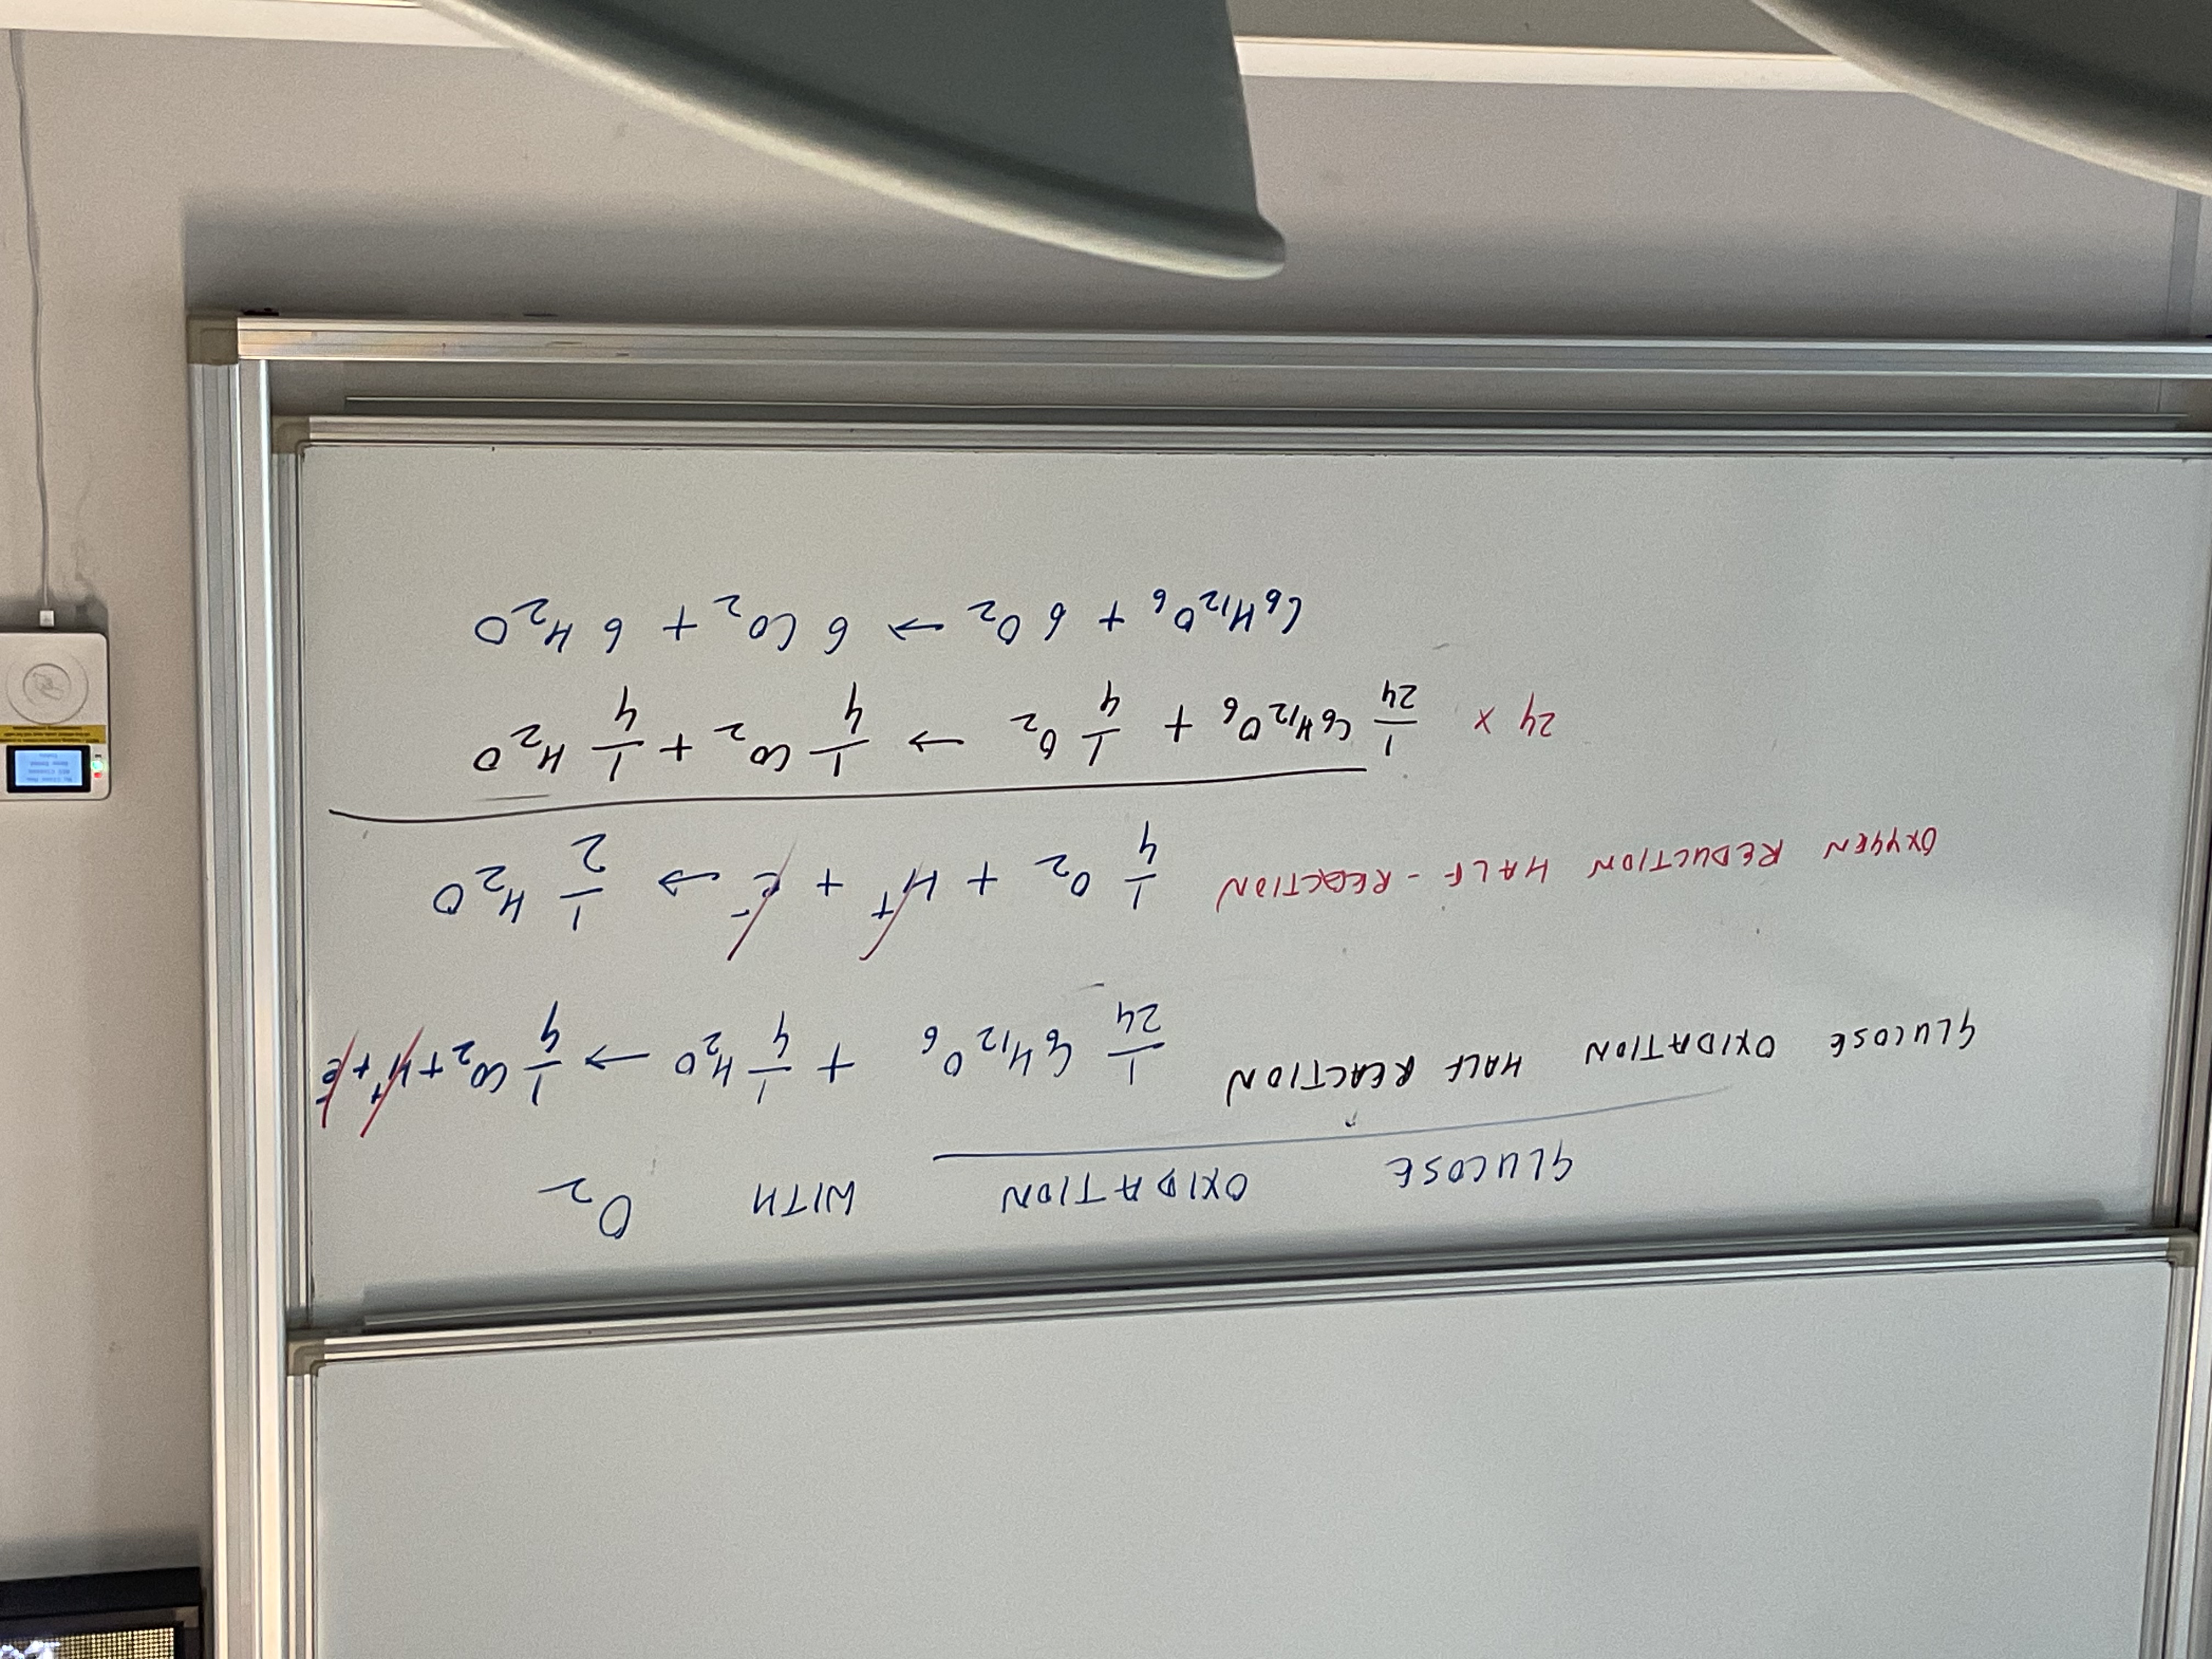 GLUCOSE OXIDATION WITH O₂
GLUCOSE OXIDATION HALF REACTION 1/24 C₆H₁₂O₆ + 1/4 H₂O → 1/4 CO₂ + H⁺ + e⁻
OXYGEN REDUCTION HALF-REACTION 1/4 O₂ + H⁺ + e⁻ → 1/2 H₂O
24 x 1/24 C₆H₁₂O₆ + 1/4 O₂ → 1/4 CO₂ + 1/4 H₂O
C₆H₁₂O₆ + 6 O₂ → 6 CO₂ + 6 H₂O